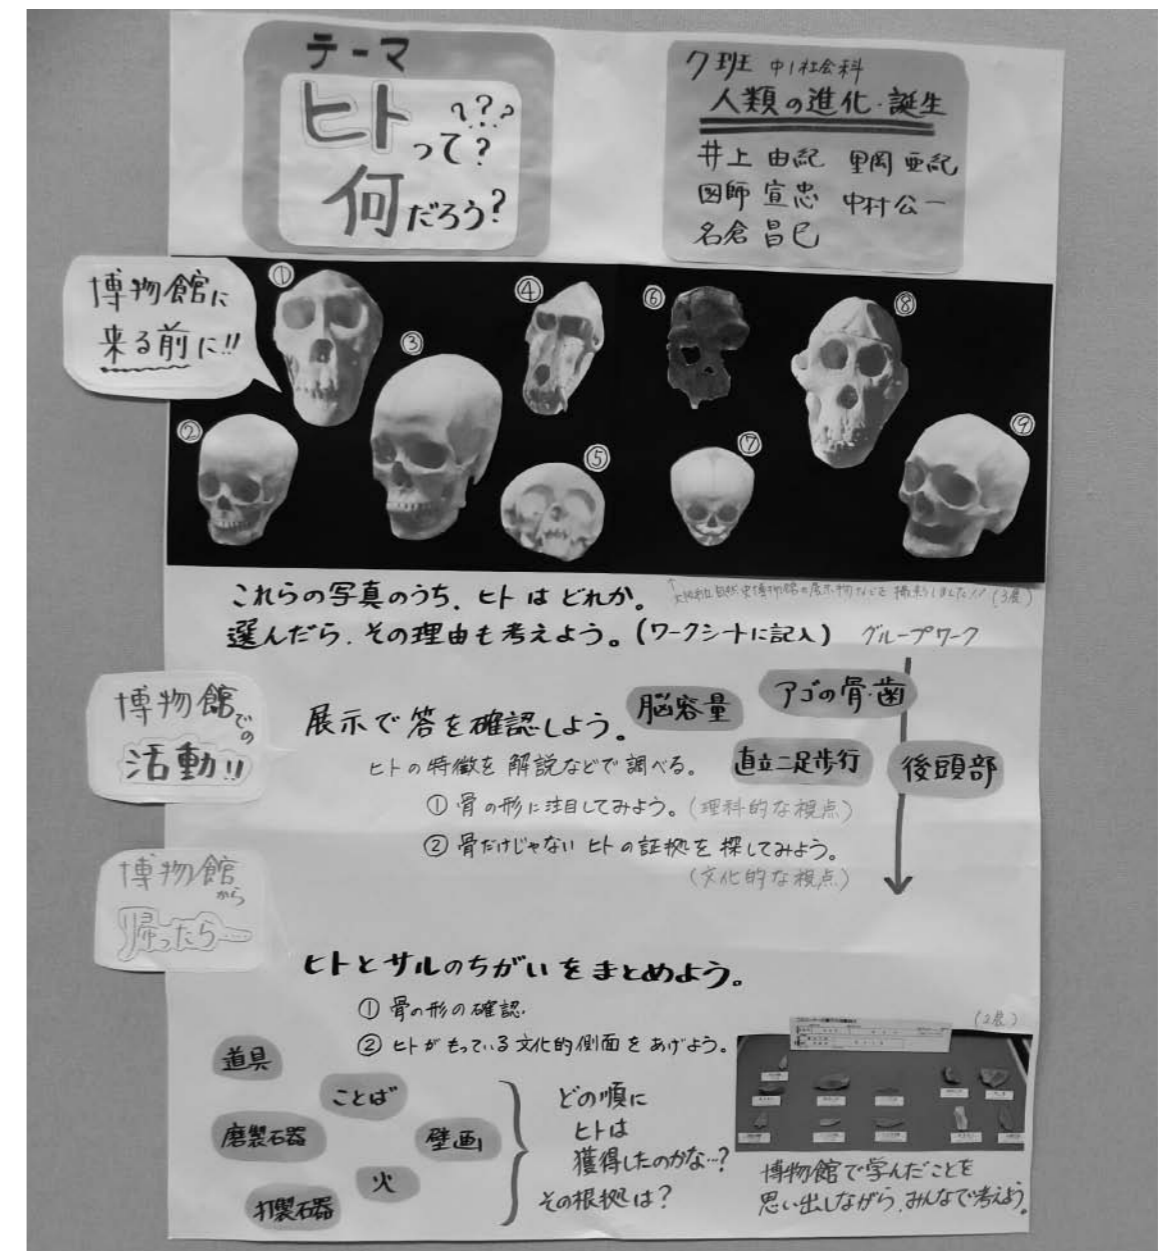 テーマ
ヒトって???
何だろう?
7班 中1社会科
人類の進化・誕生
井上 由紀 里岡 亜紀
図師 宣忠 中村公一
名倉 昌巳
博物館に
来る前に!!
①
②
③
④
⑤
⑥
⑦
⑧
⑨
これらの写真のうち、ヒトはどれか。
選んだら、その理由も考えよう。(ワークシートに記入) グループワーク
博物館での
活動!!
展示で答を確認しよう。
脳容量
アゴの骨・歯
直立二足歩行
後頭部
ヒトの特徴を解説などで調べる。
① 骨の形に注目してみよう。(理科的な視点)
② 骨だけじゃないヒトの証拠を探してみよう。
(文化的な視点)
博物館から
帰ったら…
ヒトとサルのちがいをまとめよう。
① 骨の形の確認
② ヒトがもっている文化的側面をあげよう。
道具
ことば
磨製石器
壁画
火
打製石器
どの順に
ヒトは
獲得したのかな…?
その根拠は?
博物館で学んだことを
思い出しながら、みんなで考えよう。